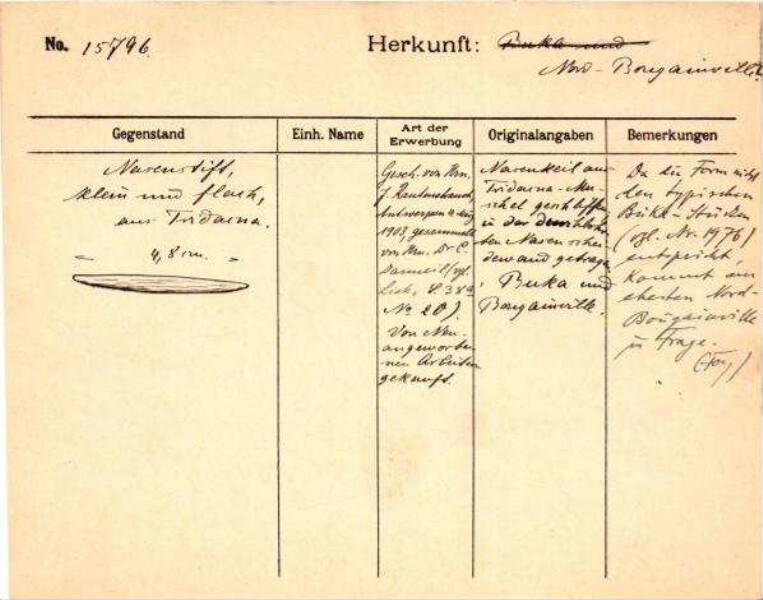 No. 15796.
Herkunft: Buka und
Nord-Bougainville.
Gegenstand
Einh. Name
Art der
Erwerbung
Originalangaben
Bemerkungen
Nasenstift,
klein und flach,
aus Tridacna.
4,8 cm.
Gesch. von Hrn.
J. 
Antwerpen 
1908, gesammelt
von Hrn. Dr C.
Danneil (vgl.
Lisk. S. 38a
No 20).
Von Neu-
angeworbe-
nen Arbeitern
gekauft.
Nasenkeil aus
Tridacna-Mu-
schel geschliffen,
in der durchbohr-
ten Nasenschei-
dewand getragen
. Buka und
Bougainville.
Da die Form nicht
den typischen
Buka-Stücken
(vgl. Nr. 1976)
entspricht,
kommt am
ehesten Nord-
Bougainville
in Frage.
(Foy)